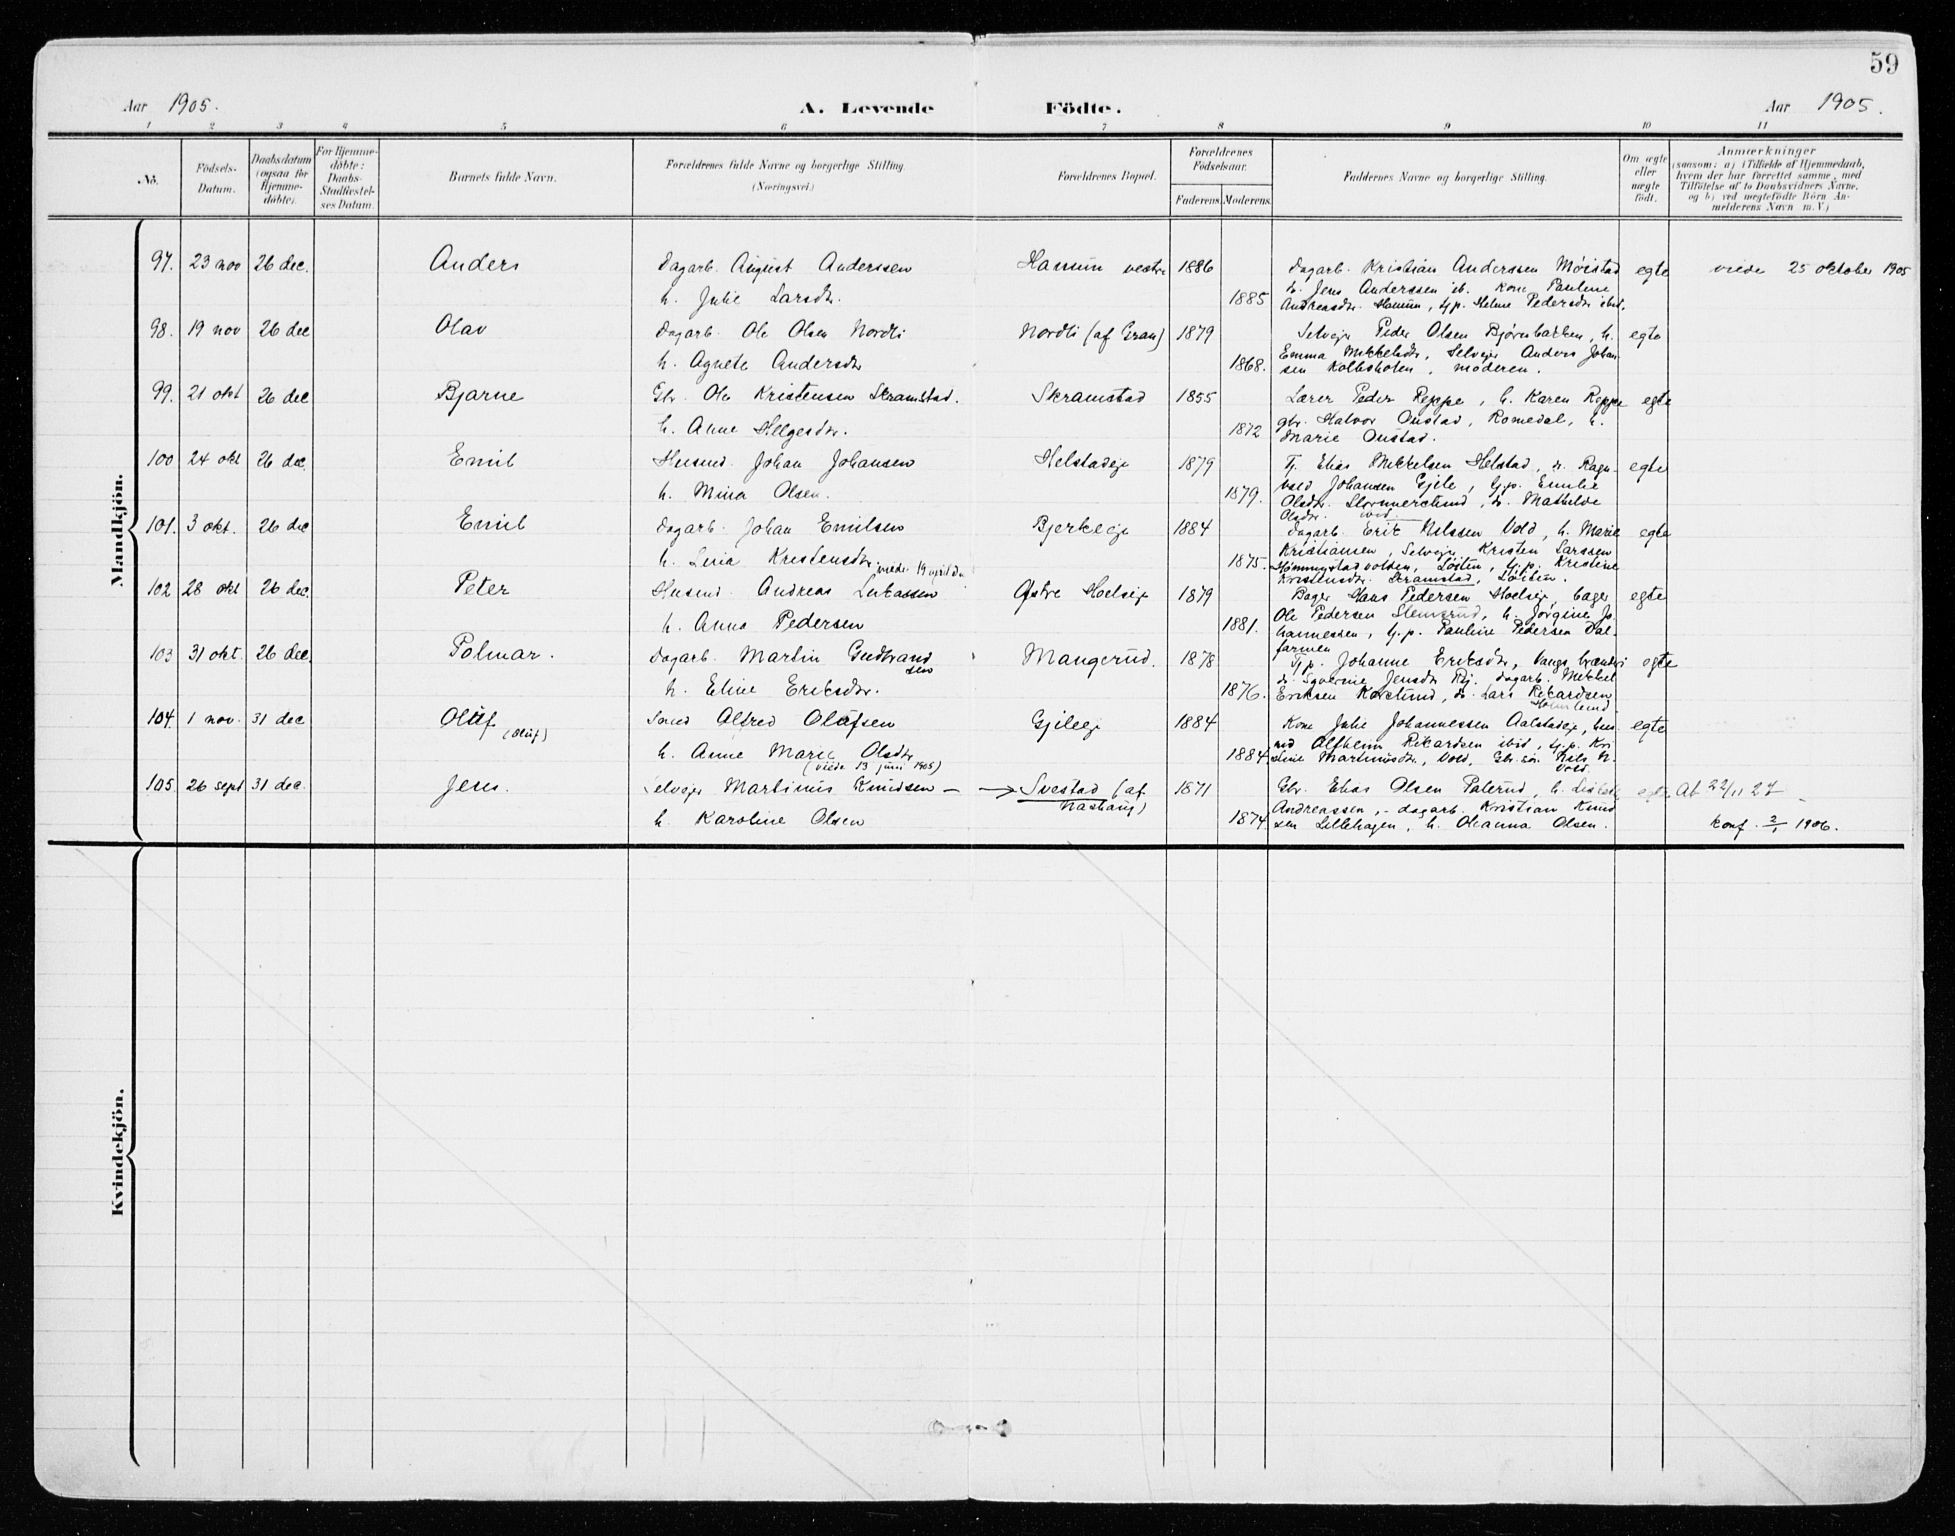 59
Aar 1905. A. Levende Födte. Aar 1905.
1 2 3 4 5 6 7 8 9 10 11
No.
Födsels-Datum.
Daabsdatum (ogsaa for Hjemme-döbte).
For Hjemme-döbte: Daabs-Stadfæstel-ses Datum.
Barnets fulde Navn.
Forældrenes fulde Navne og borgerlige Stilling (Næringsvei.)
Forældrenes Bopæl.
Forældrenes Födselsaar.
Faderens. Moderens.
Faddernes Navne og borgerlige Stilling.
Om ægte eller uægte födt.
Anmærkninger
(saasom: a) i Tilfælde af Hjemmedaab,
hvem der har forrettet samme, med
Tilföielse af to Daabsvidners Navne,
og b) ved uægtefödte Börn An-
melderens Navn m. V.)
Mandkjön.
97. 23 nov 26 dec. Anders Dagarb. August Anderssen Hamun vestre 1886 Dagarb. Kristian Anderssen Møistad egte viede 25 oktober 1905
h. Julie Larsdtr. 1885 d. Jens Anderssen ib. Kone Pauline
Andreasdr. Hamun, tj.p. Helene Pedersdr ibid.
98. 19 nov 26 dec Olav Dagarb. Ole Olsen Nordli Nordli (af Gran) 1879 Selvejer Peder Olsen Bjørnbakken, h. egte
h. Agnete Andersdr 1868. Emma Mikkelsdr, Selvejer Anders Johan-
sen Kolbsholen, moderen.
99. 21 okt 26 dec Bjarne Gbr. Ole Kristensen Skramstad. Skramstad 1855 Lærer Peder Reppe, h. Karen Reppe egte
h. Anne Helgesdr. 1872 gbr. Halvor Onstad, Romedal, h.
Marie Onstad.
100 24 okt 26 dec Emil Husmd. Johan Johansen Helstadeje 1879 Tj. Elias Mikkelsen Helstad, d. Ragn- egte
h. Mina Olsen. 1879. vald Johansen Gjile, tj.p. Emilie
Olsdr. Slommerstund, d. Mathilde
Olsdr. ibid.
101. 3 okt. 26 dec Emil Dagarb. Johan Emilsen Bjerkeeje 1884 Dagarb. Erik Nilssen Vold, h. Marie egte
h. Lena Kristensdr. viede 19 april 1875. Kristiansen, Selvejer Kristen Larssen
Hommerstadvolden, Løiten, tj.p. Kristine
Kristensdr. Skramstad, Løiten.
102 28 okt 26 dec Peter Husmd. Andreas Lukassen Østre Hoelseje 1879 Bager Hans Pedersen Hoelseje, bager egte
h. Anna Pedersen 1881. Ole Pedersen Stensrud, h. Jørgine Jo-
hannessen, tj.p. Pauline Pedersen Dal-
farmen
103 31 okt. 26 dec. Polmar. Dagarb. Martin Gudbrand sen Mangerud. 1878 Tj.p. Johanne Eriksdr, Vangs brænderi egte
h. Eline Eriksdr. 1876. d. Jensdr Dagarb. Mikkel
Eriksen d. Lars Rikardsen
104. 1 nov. 31 dec Oluf (Oluf) Smed Alfred Olufsen Gjileeje 1884 Kone Julie Johannessen Aalstadeje, hus- egte
h. Anne Marie Olsdr 1884 md Alfheim Rikardsen ibid, tj.p. Kri
(viede 13 juni 1905) stine Martinusdr, Vold, Gbr.søn Nils N.
Vold.
105. 26 sept 31 dec. Jens. Selvejer Martinus Knudsen — → Svestad (af Nashaug) 1871 Gbr. Elias Olsen Palerud, h. egte At 22/11 27
h. Karoline Olsen 1874. Andreassen, - dagarb. Kristian Knud
sen Lillehagen, h. Oleanna Olsen. Konf. 2/1 1906.
Kvindekjön.